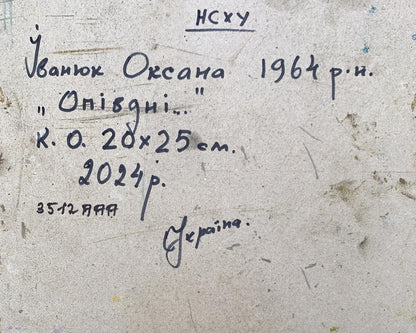 НСХУ
Іванюк Оксана 1964 р.н.
„Опівдні..."
К.О. 20х25см.
2024р.
3512ААА
Україна.